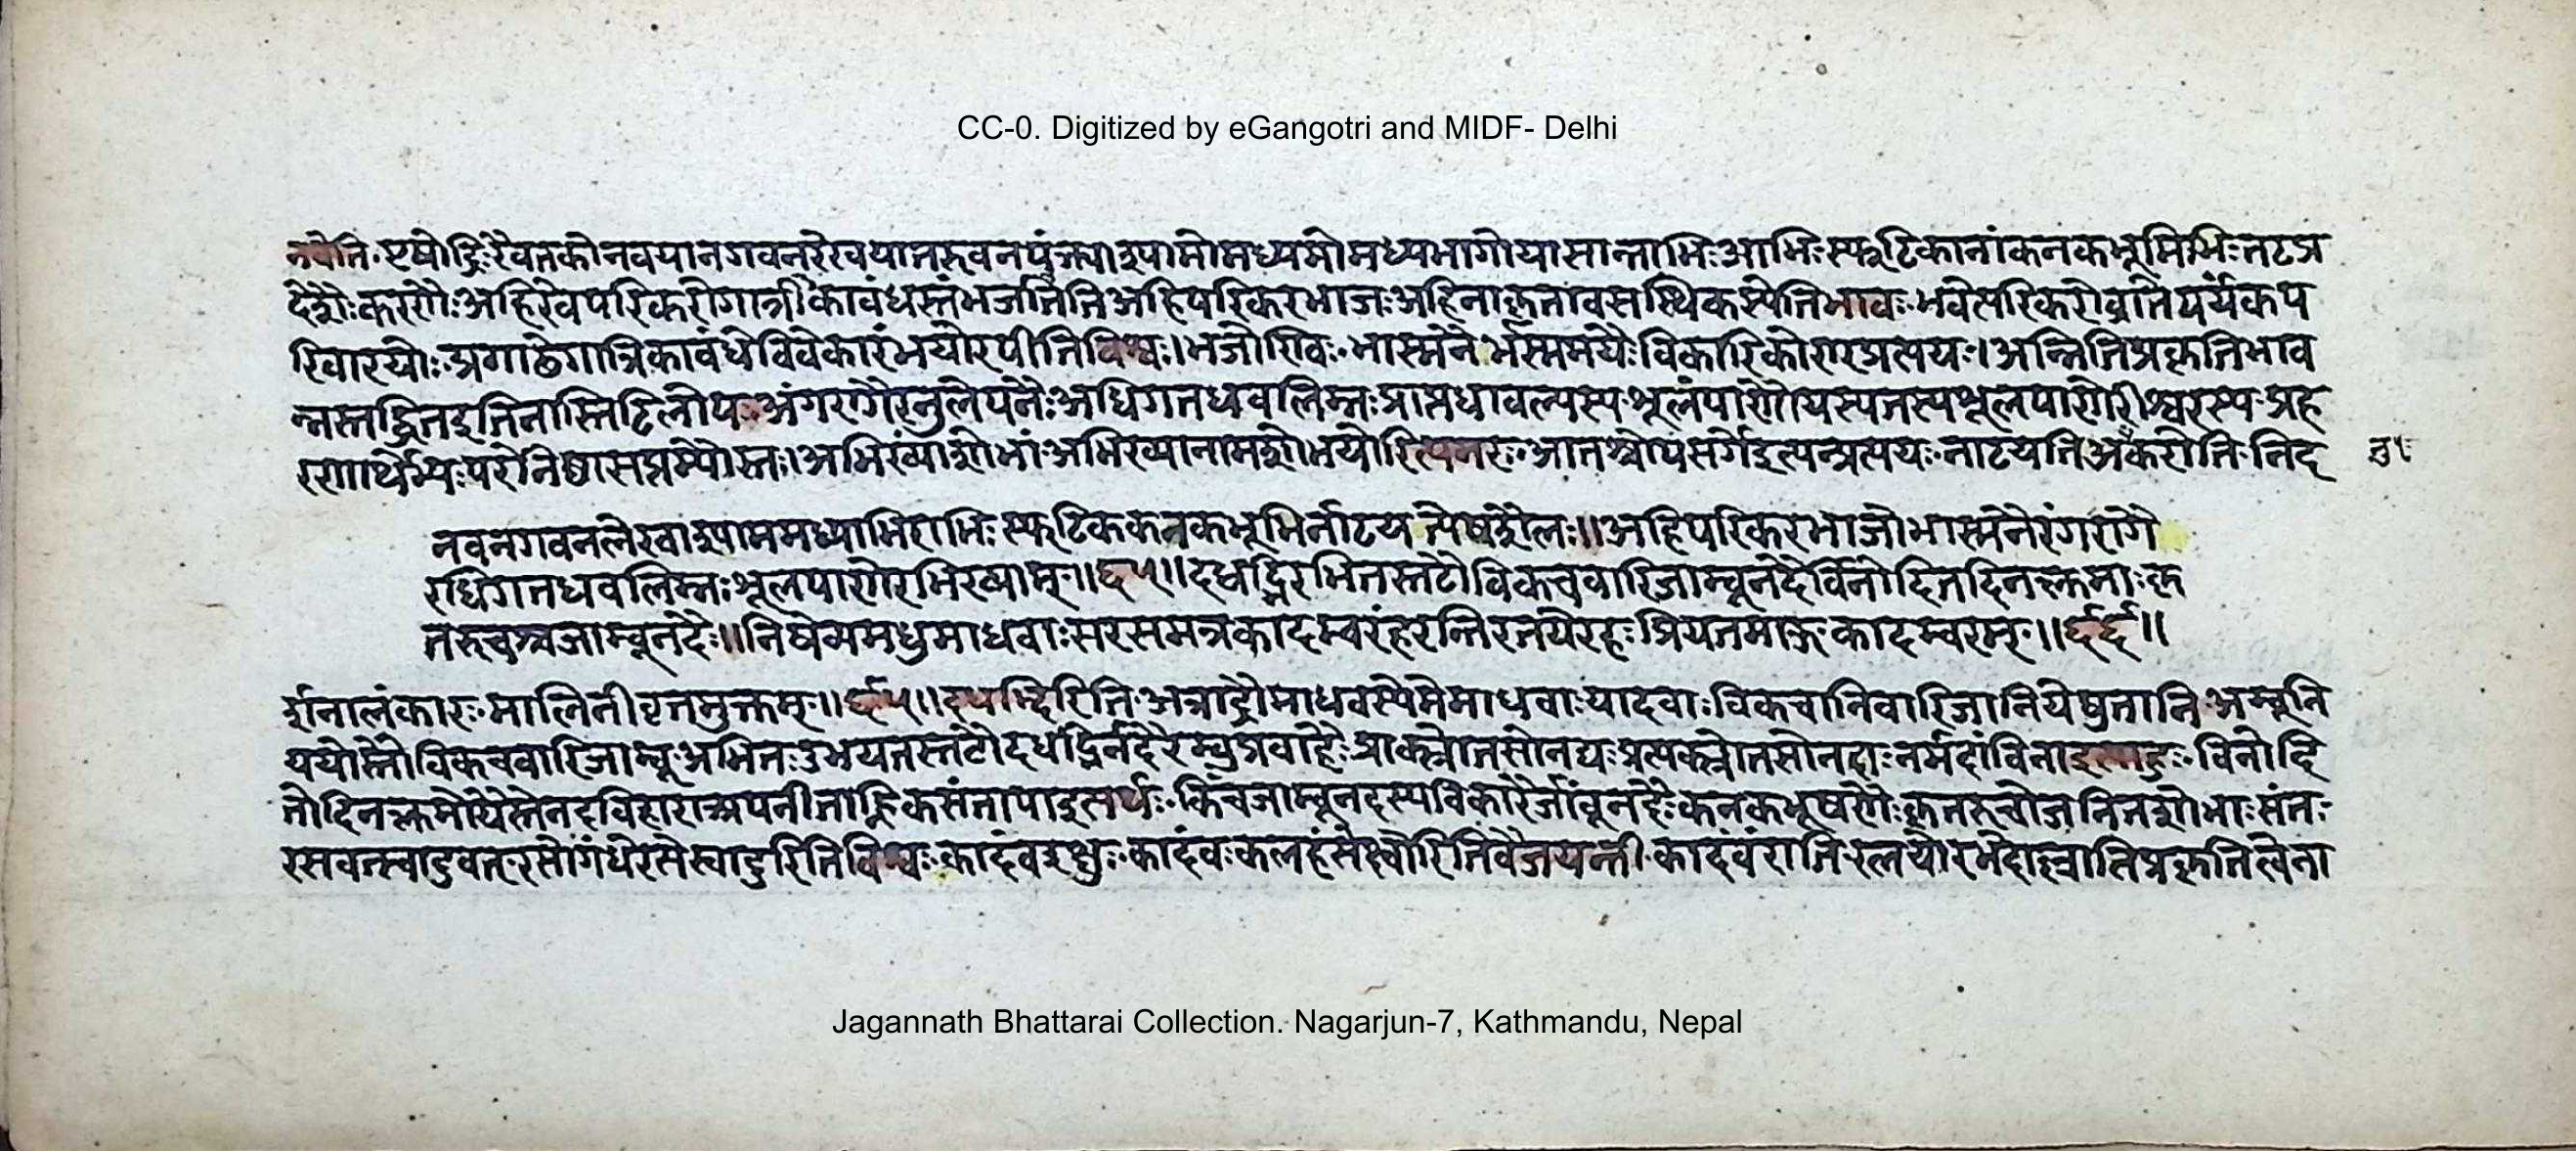 CC-0. Digitized by eGangotri and MIDF- Delhi
नवेति एषोद्रिः रैवतको नवया नगवनरेखया तरुवनपंक्त्या श्यामो मध्यमो मध्यभागो यासां ताभिः आभिः स्फटिकानां कनकभूमिभिः तटप्र
देशैः करणैः अहिरेव परिकरो गात्रिकाबंधस्तं भजतीति अहिपरिकरभाजः अहिना कृतावसक्थिकस्येतिभावः भवेत्परिकरोव्राते पर्यंकप
रिवारयोः प्रगाढेगात्रिकाबंधेविवेकारंभयोरपीतिविश्वः। भजोण्विः भास्मनैर्भस्ममयैः वैकारिकोणप्रत्ययः। अन्नितिप्रकृतिभाव
अंगरागैरनुलेपनैः अधिगतधवलिम्नः प्राप्तधावल्यस्य शूलंपाणौयस्यतस्यशूलपाणेरीश्वरस्य प्रह
रणार्थेभ्यः परेनिष्ठासप्तम्यौस्तः। अभिख्यांशोभां अभिख्यानामशोभयोरित्यमरः आतश्चोपसर्गेइत्यन्प्रत्ययः नाटयतिअनुकरोति निद
नवनगवनलेखाश्याममध्याभिराभिः स्फटिककनकभूमिर्नाटयत्येषशैलः॥ अहिपरिकरभाजोभास्मनैरंगरागै
रधिगतधवलिम्नः शूलपाणेरभिख्याम्॥६५॥ दधद्भिरभितस्तटौविकचवारिजाम्बूनदैर्विनोदितदिनक्लमाः कृ
तरुचश्चजाम्बूनदैः॥ निषेव्यमधुमाधवाः सरसमत्रकादम्बरंहरन्तिरतयेरहः प्रियतमाङ्गकादम्बरम्॥६६॥
र्शनालंकारः मालिनीवृत्तमुक्तम्॥६५॥ दधद्भिरिति अत्राद्रौमाधवस्येमेमाधवाः यादवाः विकचानिवारिजानियेषुतानि अम्बूनि
ययोस्तौविकचवारिजाम्बू अभितः उभयतस्तटौदधद्भिर्नदैरम्बुप्रवाहैः प्राक्स्रोतसोनद्यः प्रत्यक्स्रोतसोनदाः नर्मदांविनाइत्याहुः विनोदि
तोदिनक्लमोयैस्तेनदविहारात्अपनीताह्निकसंतापाइत्यर्थः किंचजाम्बूनदस्यविकारैर्जांबूनदैः कनकभूषणैः कृतरुचोजनितशोभाः संतः
रसवत्स्वादुवत् रसोगंधेरसेस्वादुरितिविश्वः कादंबइक्षुः कादंबः कलहंसेक्ष्वोरितिवैजयन्ती कादंबंरातिरलयोरभेदाल्लातिप्रकृतित्वेना
Jagannath Bhattarai Collection. Nagarjun-7, Kathmandu, Nepal